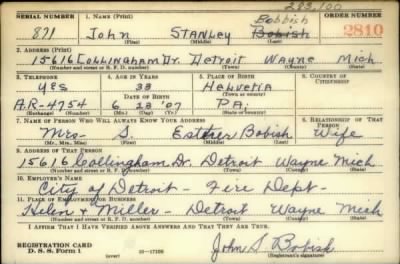 283,100
SERIAL NUMBER 1. NAME (Print) ORDER NUMBER
Bobbish
871 John STANLEY Bobish 2810
(First) (Middle) (Last)
2. ADDRESS (Print)
15616 Collingham Dr. Detroit Wayne Mich
(Number and street or R. F. D. number) (Town) (County) (State)
3. TELEPHONE 4. AGE IN YEARS 5. PLACE OF BIRTH 6. COUNTRY OF CITIZENSHIP
yes 33 Helvetia
DATE OF BIRTH (Town or county)
A.R-4754 6 23 '07 PA.
(Exchange) (Number) (Mo.) (Day) (Yr.) (State or country)
7. NAME OF PERSON WHO WILL ALWAYS KNOW YOUR ADDRESS 8. RELATIONSHIP OF THAT PERSON
Mrs S. Esther Bobish Wife
(Mr., Mrs., Miss) (First) (Middle) (Last)
9. ADDRESS OF THAT PERSON
15616 Collingham Dr. Detroit Wayne Mich
(Number and street or R. F. D. number) (Town) (County) (State)
10. EMPLOYER'S NAME
City of Detroit - Fire Dept -
11. PLACE OF EMPLOYMENT OR BUSINESS
Helen & Miller - Detroit Wayne Mich
(Number and street or R. F. D. number) (Town) (County) (State)
I AFFIRM THAT I HAVE VERIFIED ABOVE ANSWERS AND THAT THEY ARE TRUE.
REGISTRATION CARD
D. S. S. Form 1 16-17105 John S Bobish
(Registrant's signature)